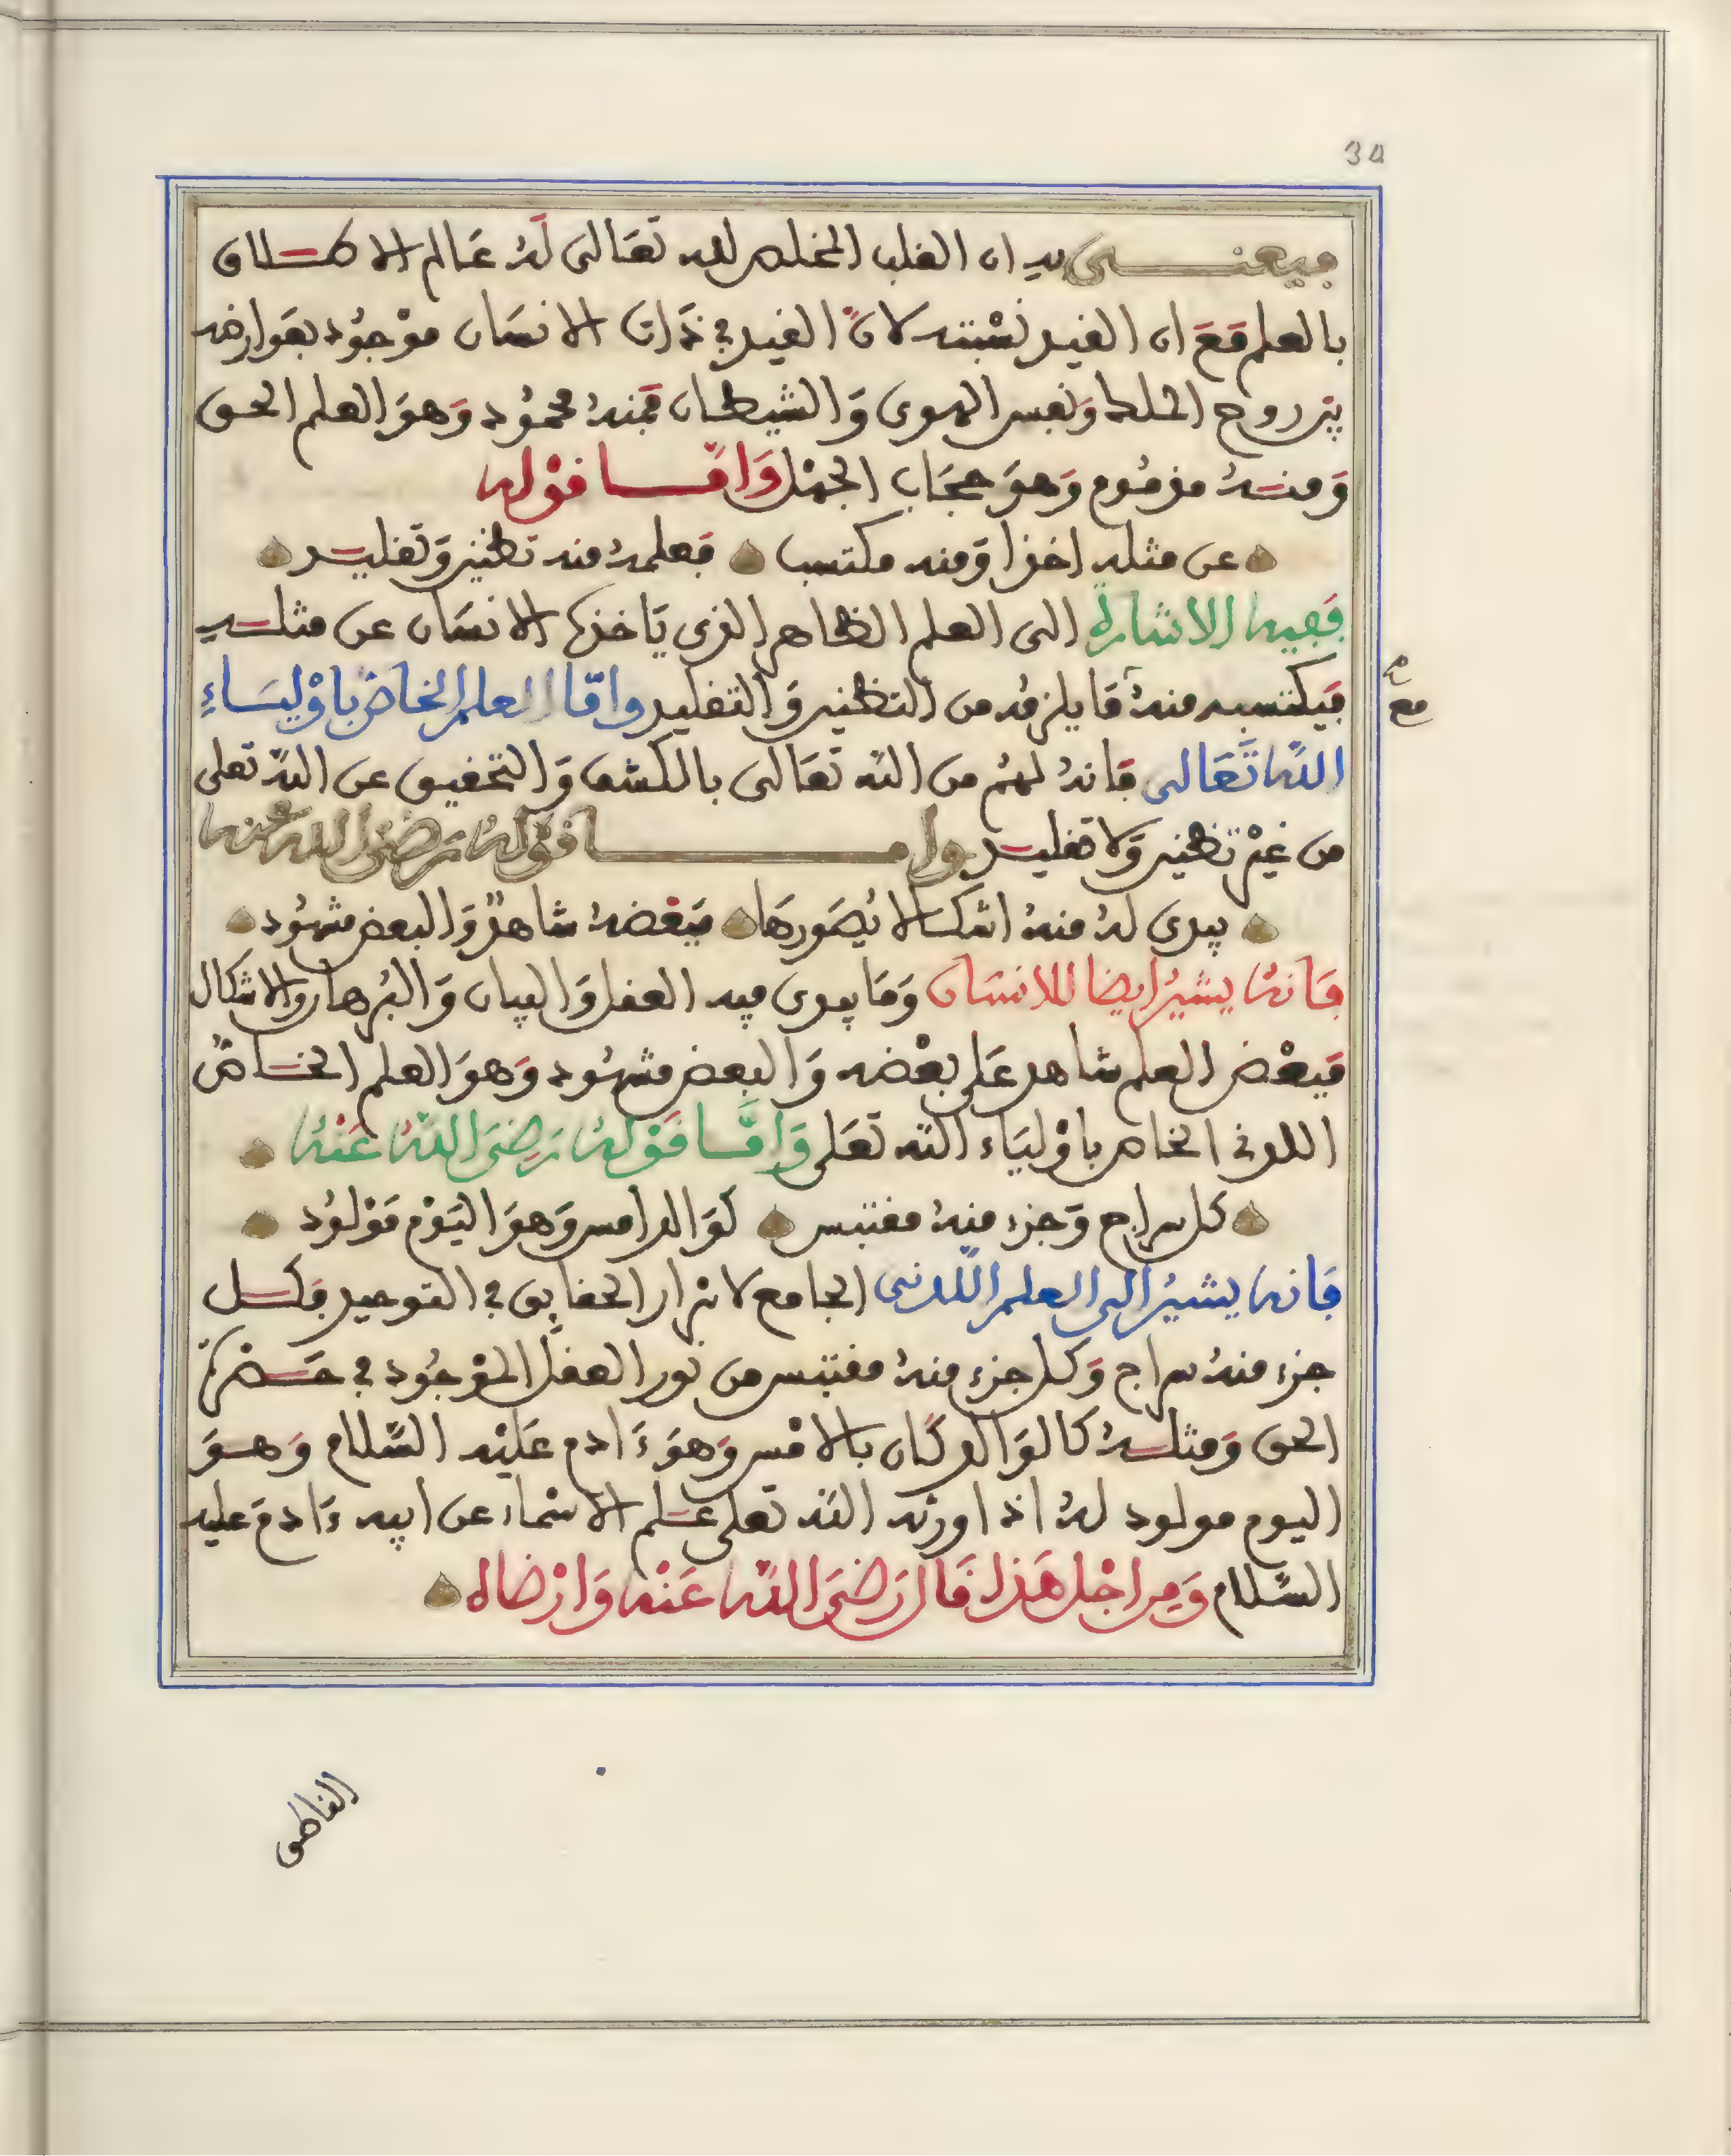 34
فيعنــــي به ان القلب المخلص لله تعَالى لَهُ عَالم الاطــلاق
بالعلم مَعَ ان القيد نسْبته لانَّ القيد في ذَات الانسَان موْجوُد بعَوارضه
بين روح الملك وَنفس الهوى وَالشيطان فمِنهُ محموُد وَهوَ العلم الحق
وَمنـهُ مذموُم وَهوَ حجَاب الجهْل وَامّــا قوْله
عن مثله اخذا وَمنه مكتسب فعلمهُ منه تظنين وَتقليـد
فَفيه الاشارة الى العلم الظاهر الذي يَاخذه الانسَان عن مثلــه
فيَكتسبه منهُ مَا يلزمُه من التظنين وَالتقليد وامّا العلم الخاصّ باوْليَـاءِ
اللّه تَعَالى فَانهُ لهُم من اللّه تعَالى بالكشف وَالتحقيق عن اللّه تعلى
من غيْر تظنين وَلا تقليـد وامــــــا قوْلهُ رَضيَ الله عنه
يبدى لهُ منهُ اشكـالا يُصَورهَا فبَعْضهُ شاهدٌ وَالبعض مشهوُد
فَانهُ يشيرُ ايضا للانسَان وَمَا يبدى فيه العقل وَالبيان وَالبُرهان والاشكال
فبَعْض العلم شاهد عَلى بعْضه وَالبعض مشهوُد وَهوَ العلم الخــاصّ
اللدني الخاص باوْليَاء اللّه تعَلى وَامَّــا قَوْلهُ رَضيَ اللّهُ عَنْهُ
كل سراج وَجزء منهُ مقتبس كوَالد امس وَهوَ اليَوْم مَوْلوُد
فَانه يشيرُ الى العلم اللّدني الجامع لاسْرار الحقايق في التوحيد فكــل
جزء منهُ سراج وَكل جزء منهُ مقتبس من نور العقل الموْجوُد في حَــضْرة
الحق وَمثلــهُ كالوَالد كَان بالامْس وَهوَ ءَادم عَليْه السّلام وَهــوَ
اليوم مولود لهُ اذ اورثه اللّه تعلى علــم الاسْماء عن ابيه ءَادمَ عليه
السّلام وَمِن اجْل هَذا قَال رَضيَ اللّه عَنْه وَارْضاه
مع
الفاطمى